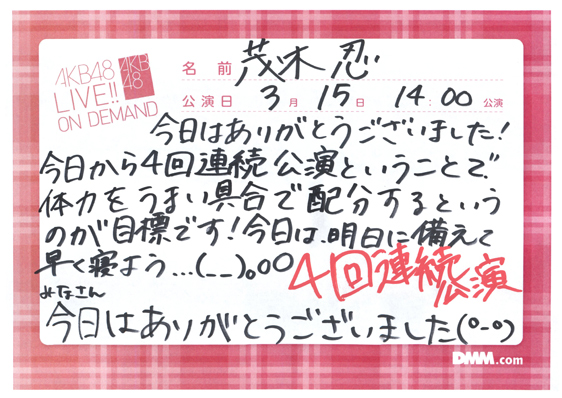 AKB48
LIVE!!
ON DEMAND
AKB
48
名前 茂木忍
公演日 3月15日 14:00公演
今日はありがとうございました!
今日から4回連続公演ということで
体力をうまい具合で配分するという
のが目標です!今日は、明日に備えて
早く寝よう…(__)。oO
4回連続
公演
みなさん
今日はありがとうございました(o-o)
DMM.com